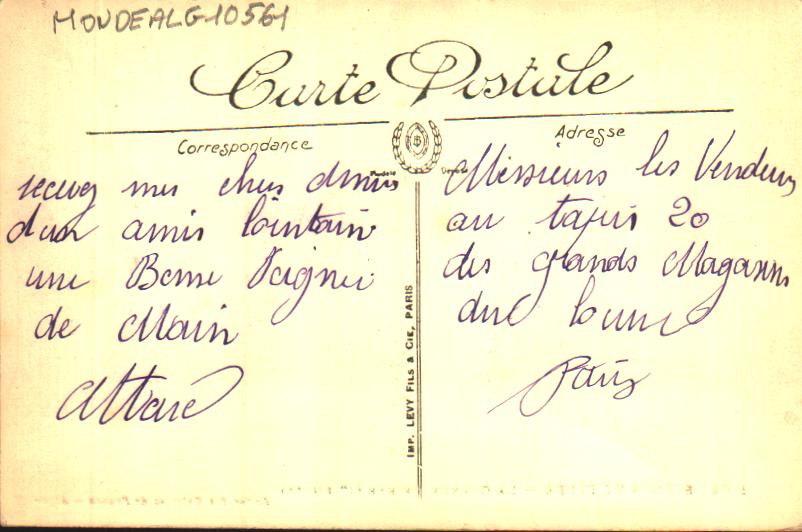 MONDEALG10561
Carte Postale
Correspondance
Adresse
Modèle Déposé
recevez mes chers amis
d'un amis lointain
une Bonne Poignée
de Main
Attaré
IMP. LEVY FILS & CIE, PARIS
Messieurs les Vendeurs
au tapis 20
des grands Magasins
du Louvre
Paris